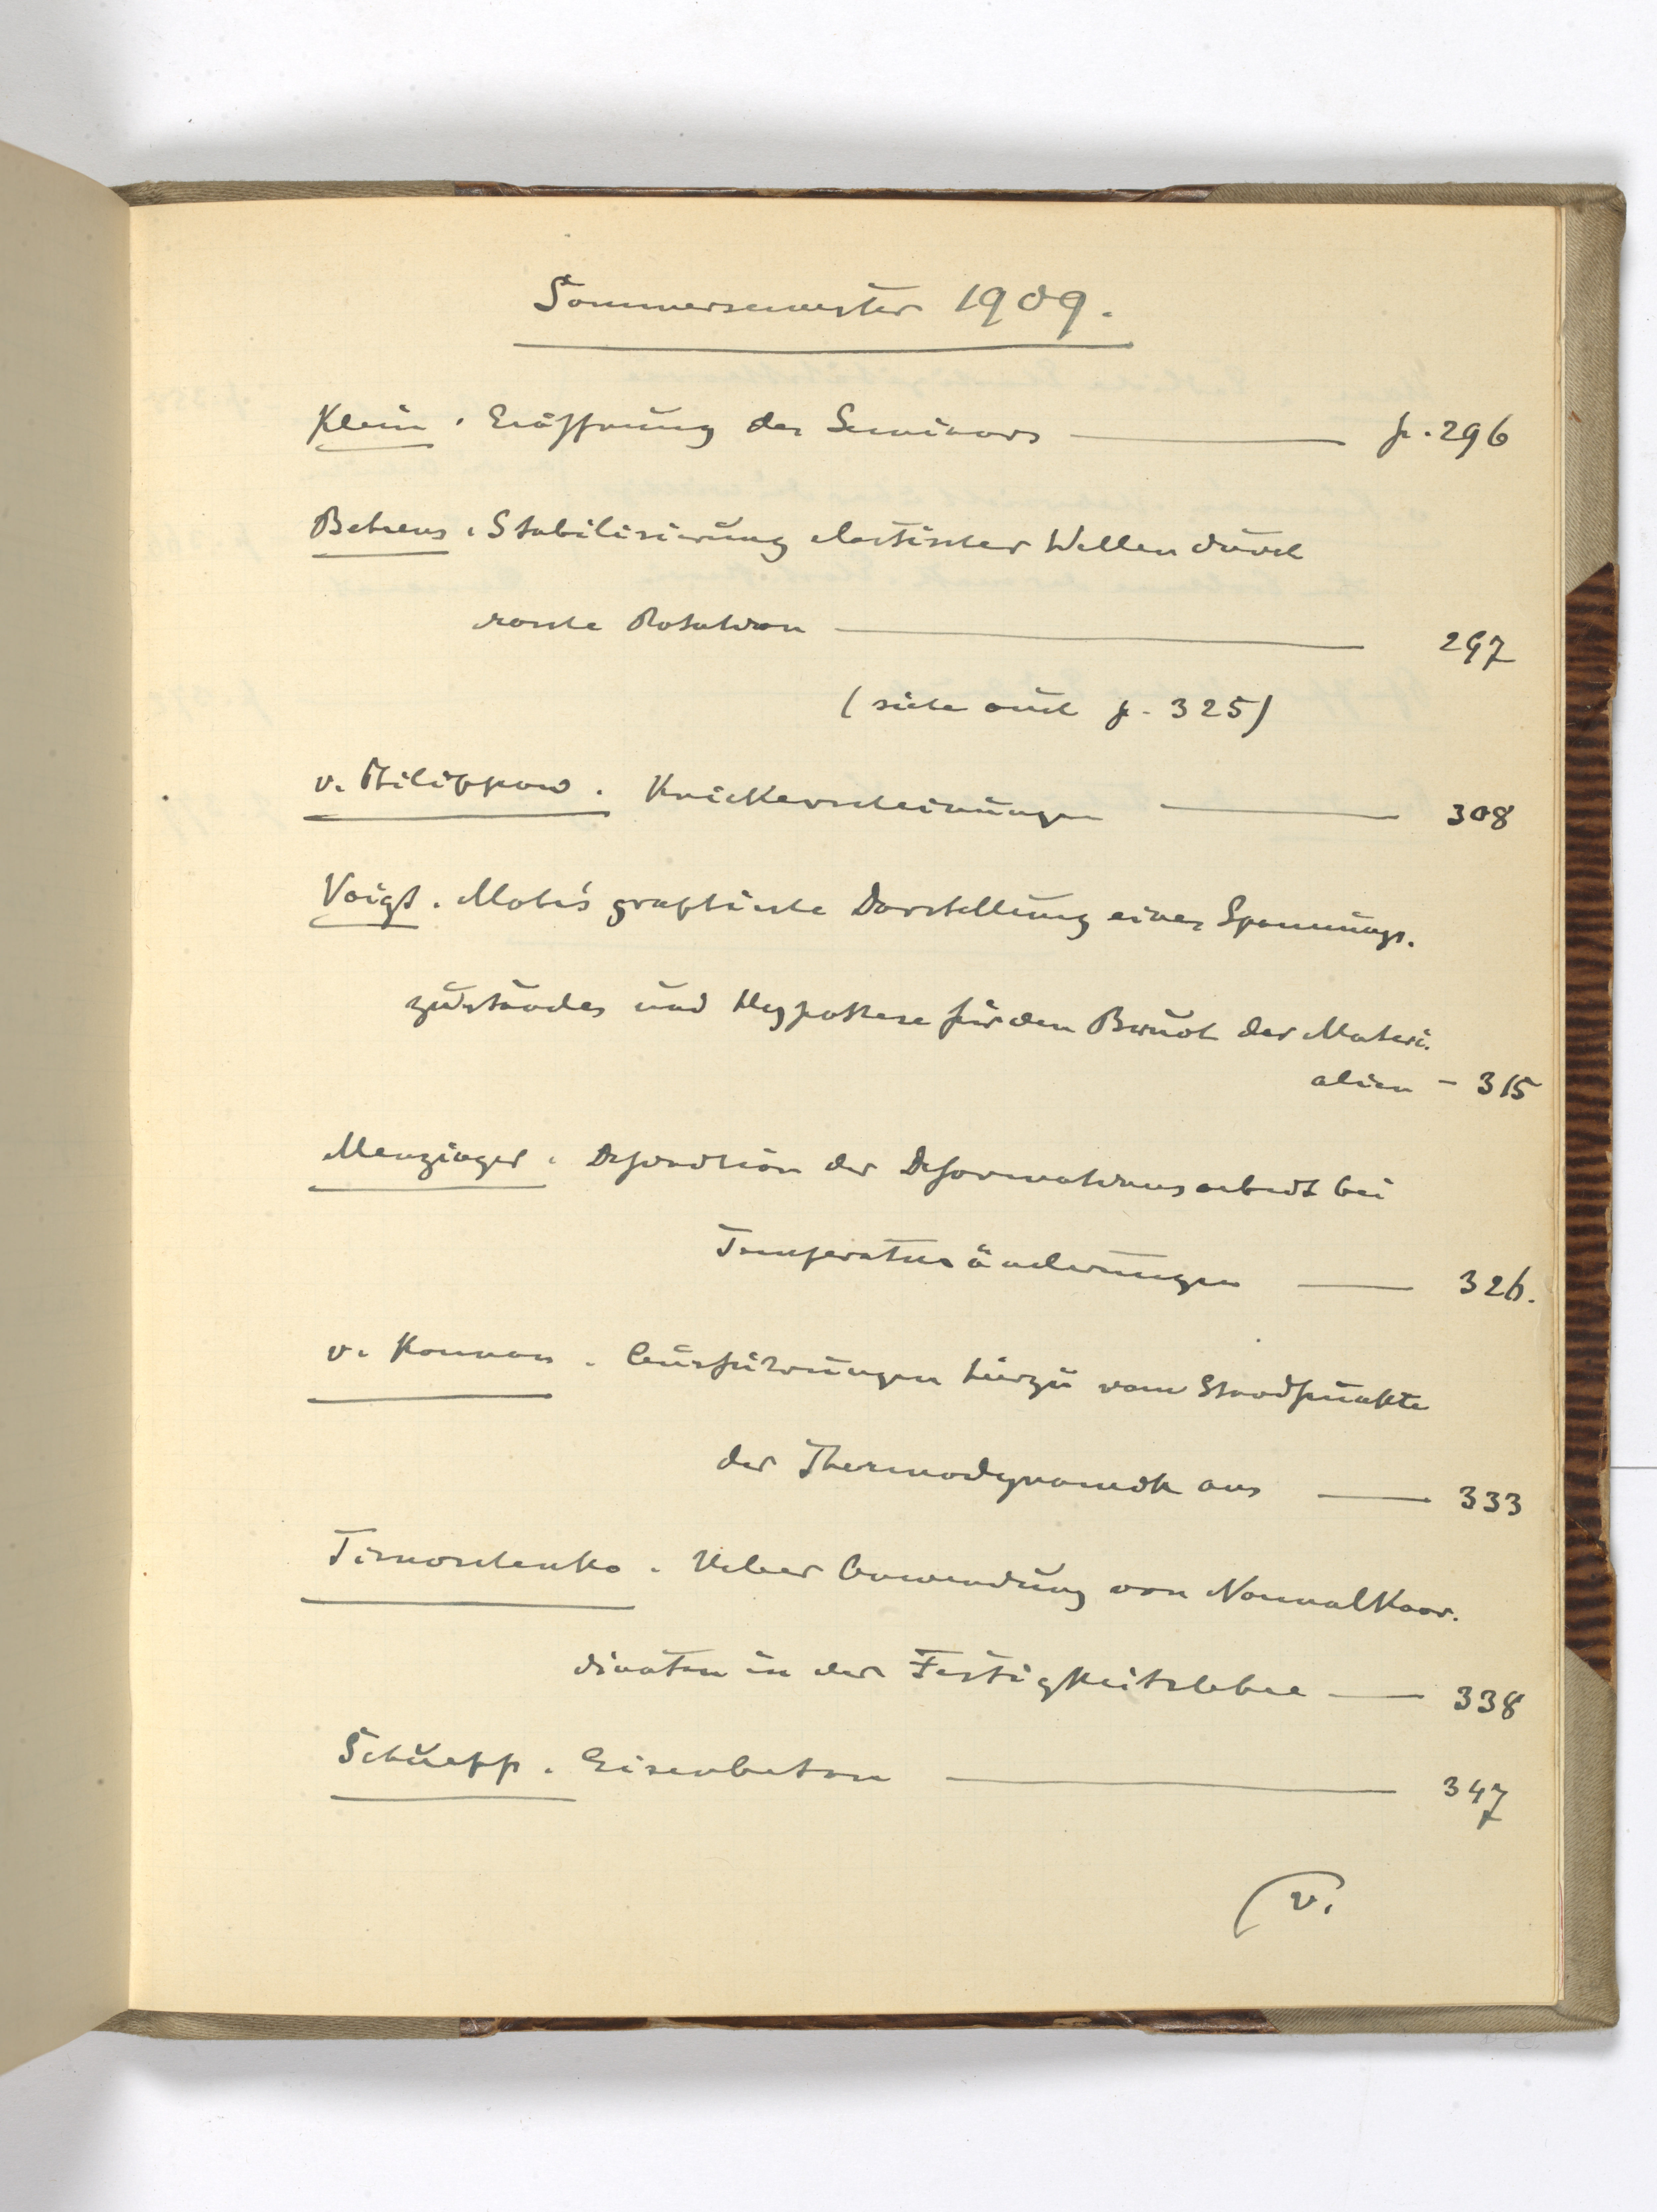 Sommersemester 1909.
Klein. Eröffnung des Seminars — p. 296
Behrens. Stabilisierung elastischer Wellen durch
rasche Rotation — 297
(siehe auch p. 325)
v. Philippow. Knickerscheinungen — 308
Voigt. Mohr's graphische Darstellung eines Spannungs-
zustandes und Hypothese für den Bruch der Materi-
alien — 315
Menzinger. Definition der Deformationsarbeit bei
Temperaturänderungen — 326.
v. Karman. Ausführungen hierzu vom Standpunkte
der Thermodynamik aus — 333
Timoschenko. Ueber Anwendung von Normalkoor-
dinaten in der Festigkeitslehre — 338
Schüepp. Eisenbeton — 347